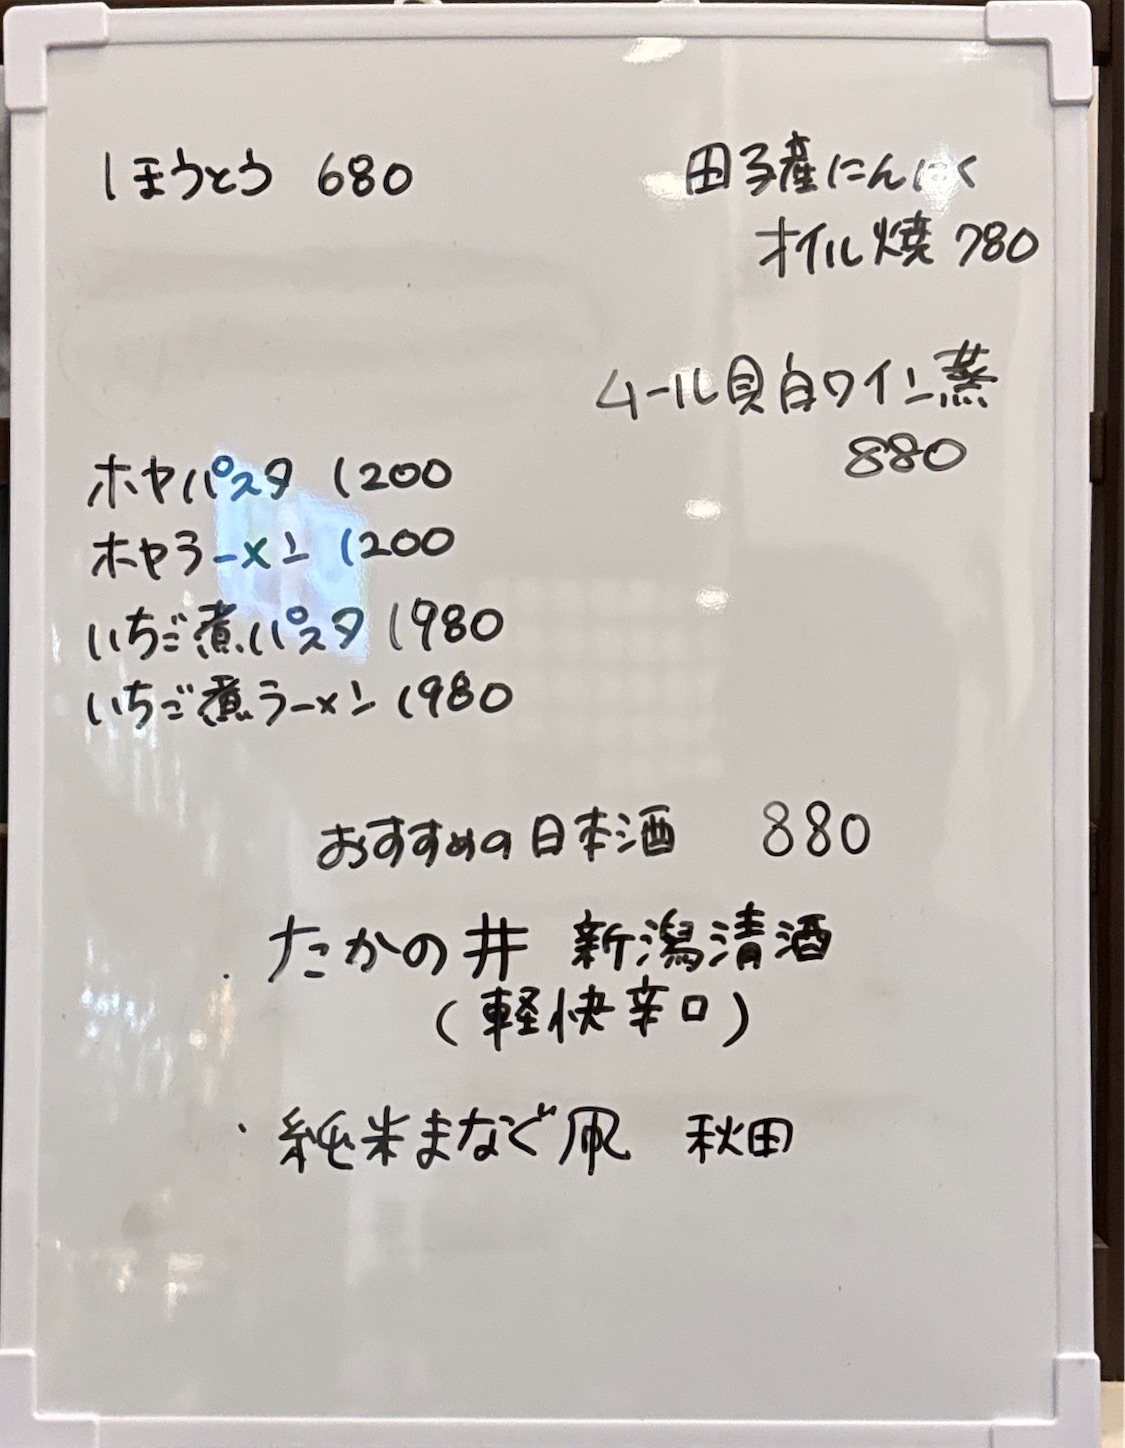 ほうとう 680
田子産にんにく
オイル焼 780
ムール貝白ワイン蒸
880
ホヤパスタ 1200
ホヤラーメン 1200
いちご煮パスタ 1980
いちご煮ラーメン 1980
おすすめの日本酒 880
・たかの井 新潟清酒
(軽快辛口)
・純米まなぐ凧 秋田